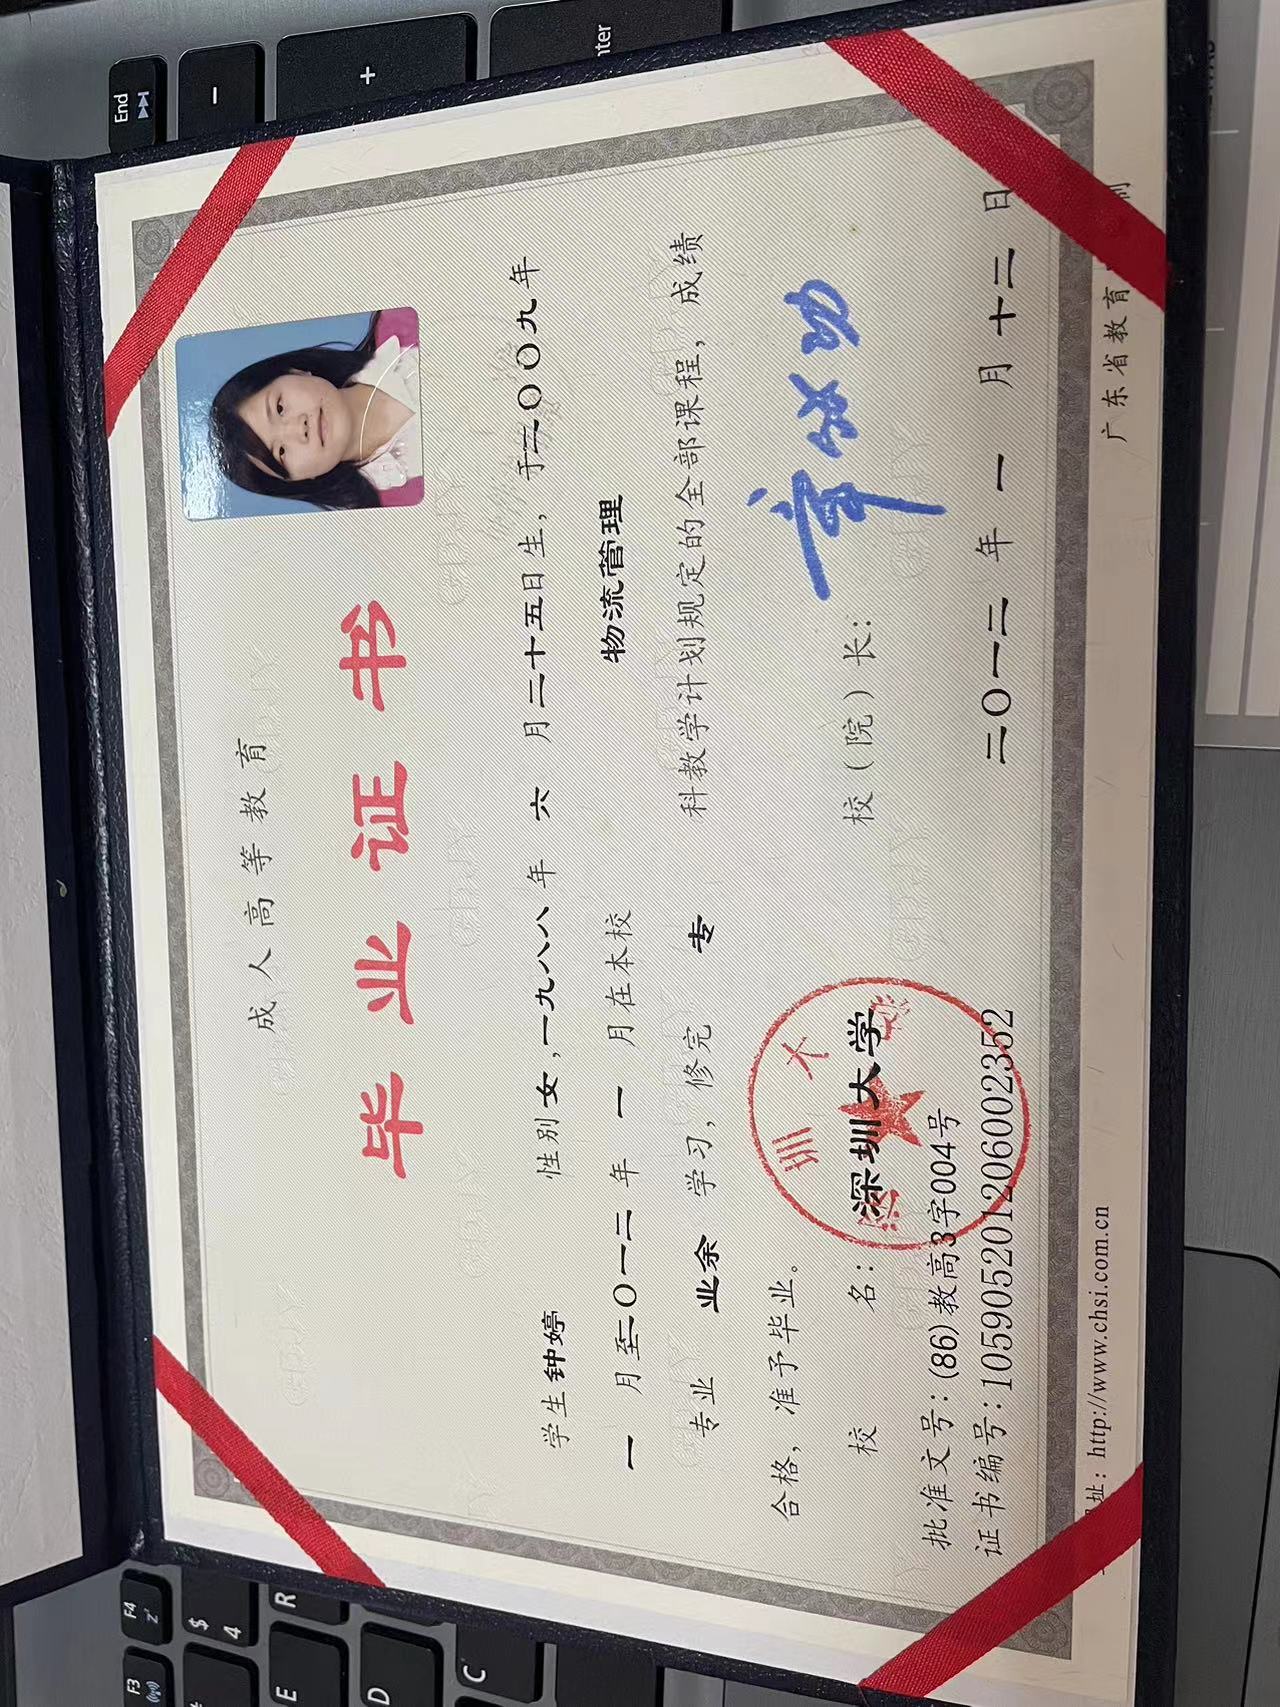 成人高等教育
毕业证书
学生钟婷 性别女,一九八八年 六 月二十五日生,于二〇〇九年
一 月至二〇一二年 一 月在本校 物流管理
专业 业余 学习,修完 专 科教学计划规定的全部课程,成绩
合格,准予毕业。
校 名:深圳大学 校(院)长:
批准文号:(86)教高3字004号
证书编号:105905201206002352
二〇一二 年 一 月 十二 日
址:http://www.chsi.com.cn 广东省教育 制
End
-
+
nter
F4
F3
$
4
R
E
D
C